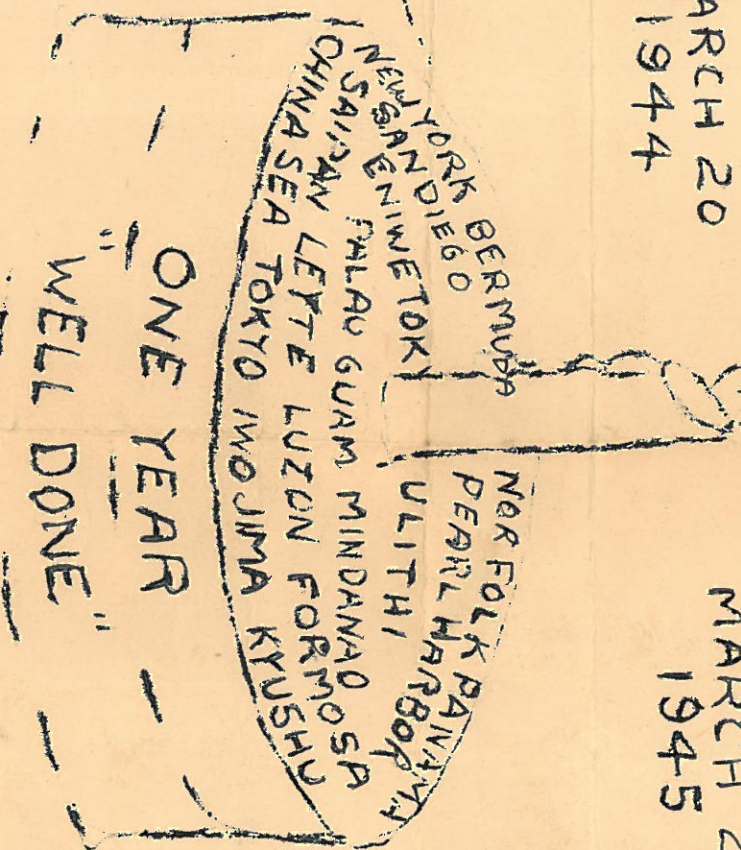 ARCH 20
1944
MARCH 2
1945
NEW YORK BERMUDA NORFOLK PANAMA
SAN DIEGO PEARL HARBOR
ENIWETOK ULITHI
PALAU GUAM MINDANAO
SAIPAN LEYTE LUZON FORMOSA
CHINA SEA TOKYO IWO JIMA KYUSHU
ONE YEAR
"WELL DONE"